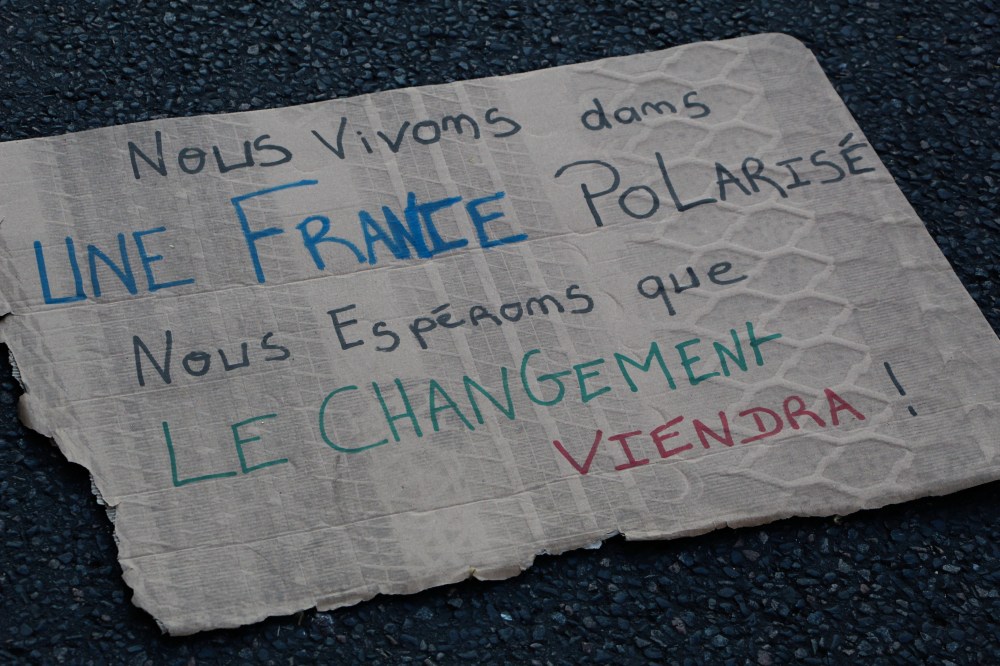 Nous Vivons dans
UNE FRANCE POLARISÉ
Nous Espérons que
LE CHANGEMENt
VIENDRA !